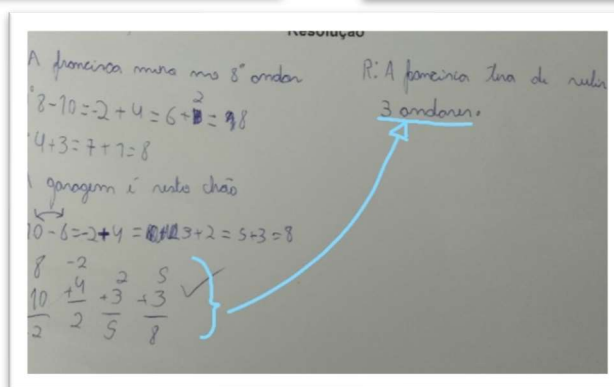 Resolução
A francisca mora no 8º andar
8-10=-2+4=6+2=8
4+3=7+1=8
garagem é resto chão
10-8=-2+4= 3+2=5+3=8
8 -2 2 5
10 +4 +3 +3
2 2 5 8
R: A francisca tera de subir
3 andares.